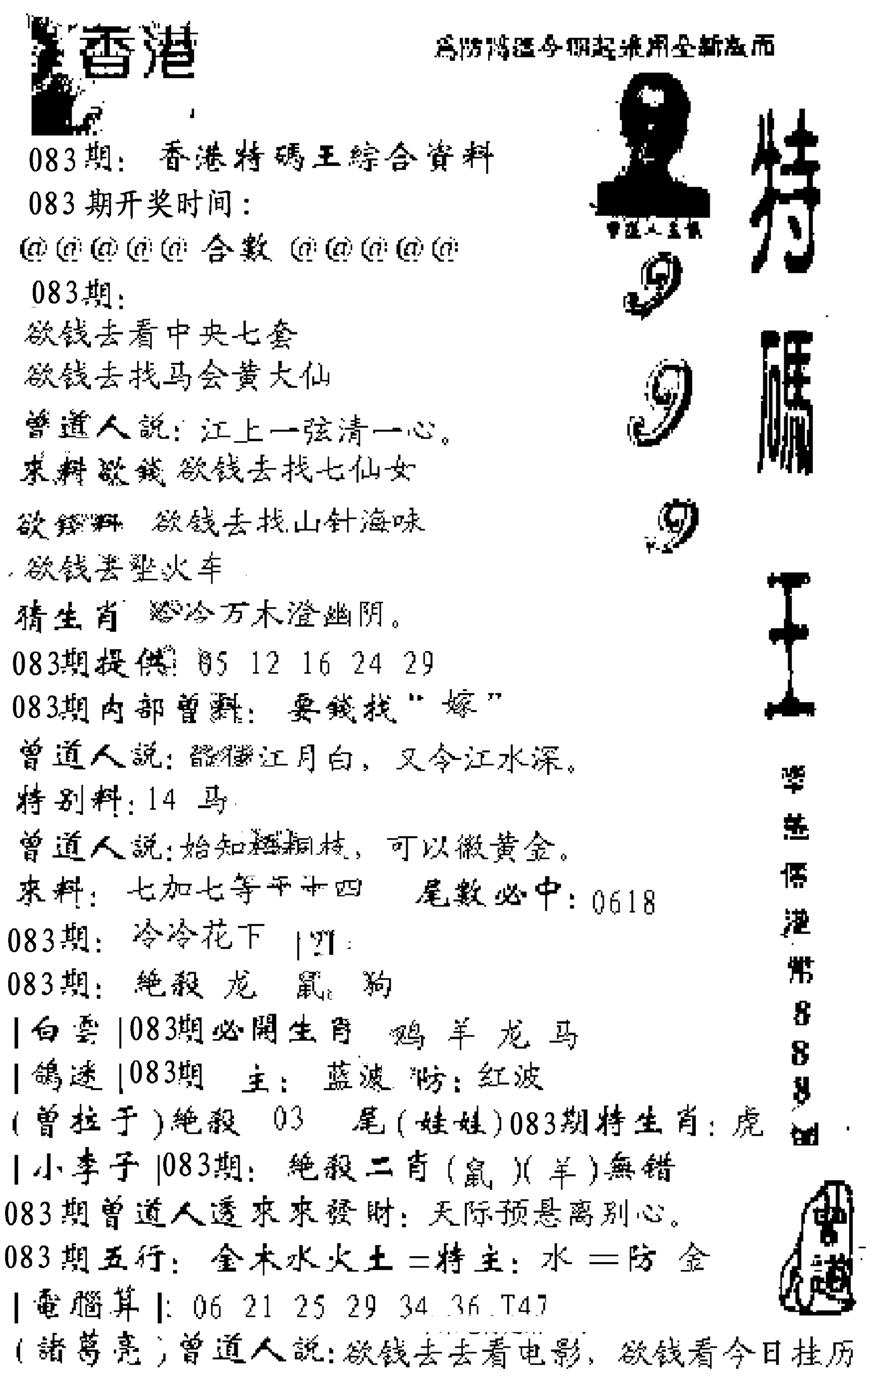 香港
為防 今期起採用全新版面
083期: 香港特碼王綜合資料
083期开奖时间:
@@@@@ 合數 @@@@@
083期:
欲钱去看中央七套
欲钱去找马会黄大仙
曾道人説: 江上一弦清一心。
來料欲錢 欲钱去找七仙女
欲錢料 欲钱去找山针海味
欲钱去坐火车
猜生肖 泠冷万木澄幽阴。
083期提供: 05 12 16 24 29
083期内部曾料: 要錢找“嫁”
曾道人説: 江月白, 又令江水深。
特别料: 14 马
曾道人説: 始知梧桐枝, 可以徽黄金。
來料: 七加七等于十四 尾數必中: 0618
083期: 冷冷花下
083期: 絶殺 龙 鼠 狗
|白雲|083期必開生肖 鸡 羊 龙 马
|鴿迷|083期 主: 蓝波 防: 红波
(曾拉于)絶殺 03 尾(娃娃)083期特生肖: 虎
|小李子|083期: 絶殺二肖(鼠)(羊)無错
083期曾道人透來來發財: 天际预悬离别心。
083期五行: 金木水火土=特主: 水 =防 金
|電腦算|: 06 21 25 29 34 36 T47
(諸葛亮)曾道人説: 欲钱去去看电影, 欲钱看今日挂历
曾道人主
999
特碼王
港幣888
曾道